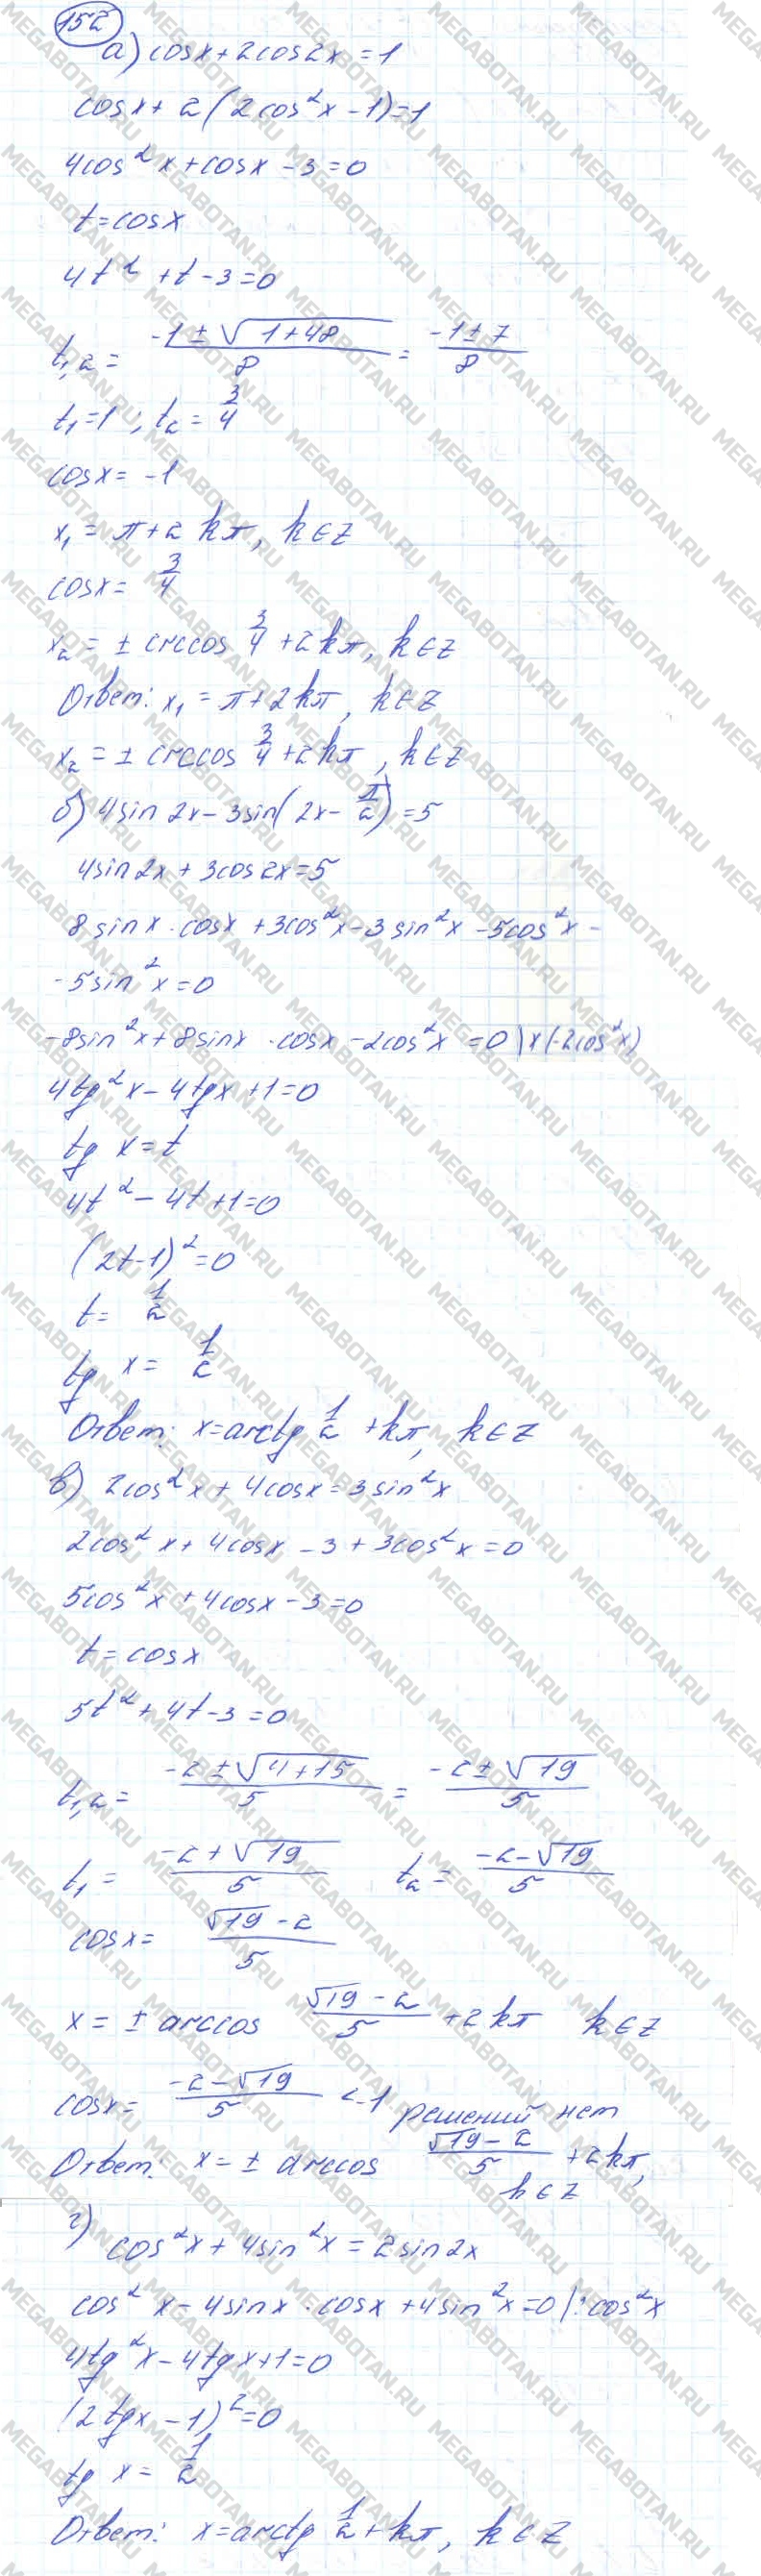 152
а) cosx+2cos2x=1
cosx+2(2cos²x-1)=1
4cos²x+cosx-3=0
t=cosx
4t²+t-3=0
t₁,₂= (-1±√(1+48))/8 = (-1±7)/8
t₁=1; t₂=3/4
cosx=-1
x₁=π+2kπ, k∈Z
cosx=3/4
x₂=±arccos 3/4+2kπ, k∈Z
Ответ: x₁=π+2kπ, k∈Z
x₂=±arccos 3/4+2kπ, k∈Z
б) 4sin2x-3sin(2x-π/2)=5
4sin2x+3cos2x=5
8sinx·cosx+3cos²x-3sin²x-5cos²x-
-5sin²x=0
-8sin²x+8sinx·cosx-2cos²x=0)x(-2cos²x)
4tg²x-4tgx+1=0
tg x=t
4t²-4t+1=0
(2t-1)²=0
t=1/2
tg x=1/2
Ответ: x=arctg 1/2+kπ, k∈Z
в) 2cos²x+4cosx=3sin²x
2cos²x+4cosx-3+3cos²x=0
5cos²x+4cosx-3=0
t=cosx
5t²+4t-3=0
t₁,₂= (-2±√(4+15))/5 = (-2±√19)/5
t₁= (-2+√19)/5 t₂= (-2-√19)/5
cosx= (√19-2)/5
x=±arccos (√19-2)/5+2kπ k∈Z
cosx= (-2-√19)/5 <-1 решений нет
Ответ: x=±arccos (√19-2)/5+2kπ,
k∈Z
г) cos²x+4sin²x=2sin2x
cos²x-4sinx·cosx+4sin²x=0|:cos²x
4tg²x-4tgx+1=0
(2tgx-1)²=0
tg x=1/2
Ответ: x=arctg 1/2+kπ, k∈Z